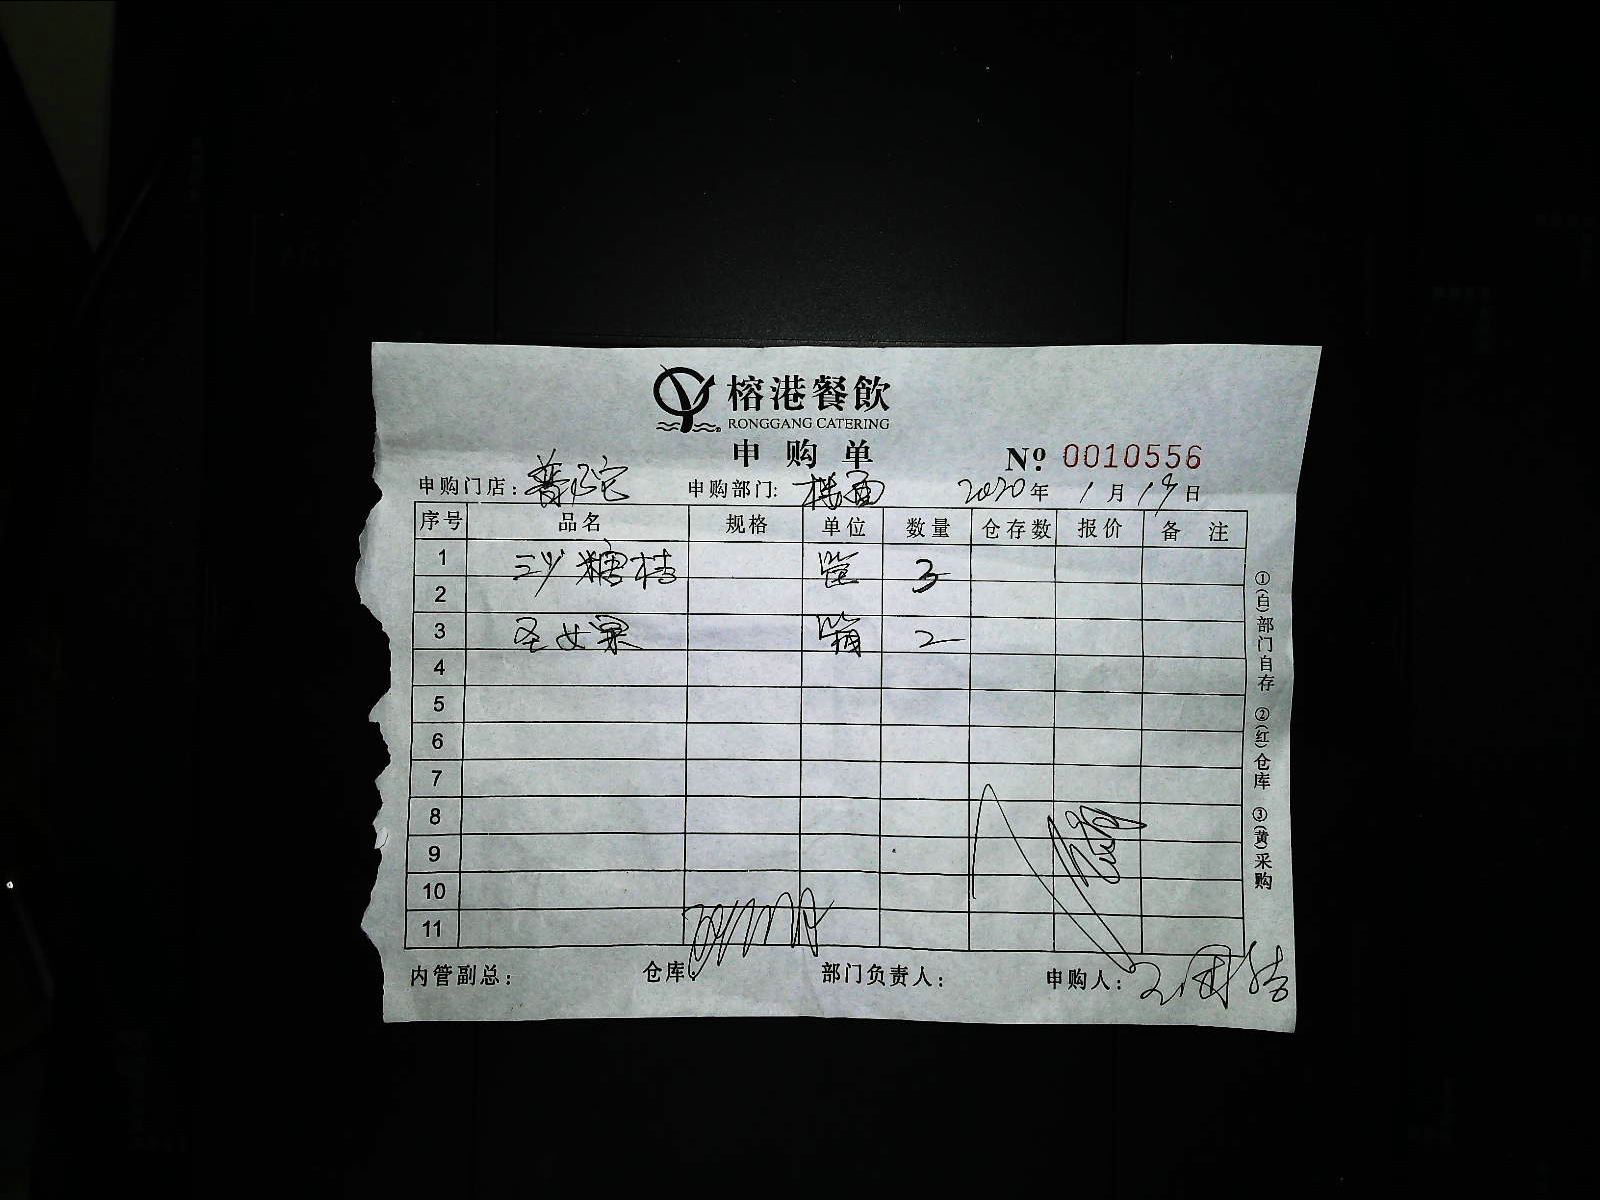 榕港餐飲
RONGGANG CATERING
申购单
№ 0010556
申购门店：普陀 申购部门：楼面 2020年1月19日
序号 品名 规格 单位 数量 仓存数 报价 备注
1 沙糖桔 筐 3
2
3 圣女果 箱 2
4
5
6
7
8
9
10
11
内管副总： 仓库： 部门负责人： 申购人：
①(白)部门自存 ②(红)仓库 ③(黄)采购